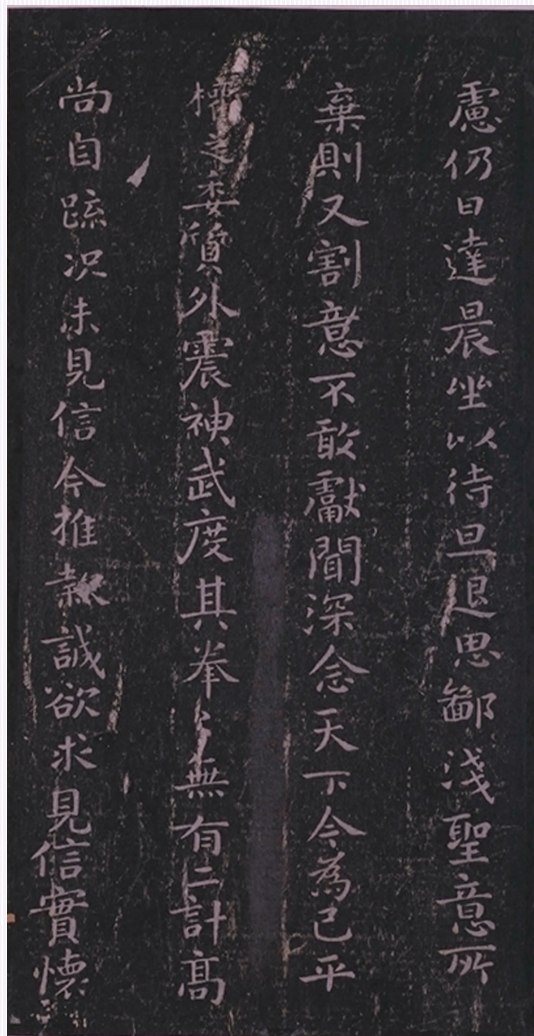 慮仍日達晨坐以待旦退思鄙淺聖意所
棄則又割意不敢獻聞深念天下今為已平
權之委質外震神武度其拳〻無有二計高
尚自疏況未見信今推款誠欲求見信實懷